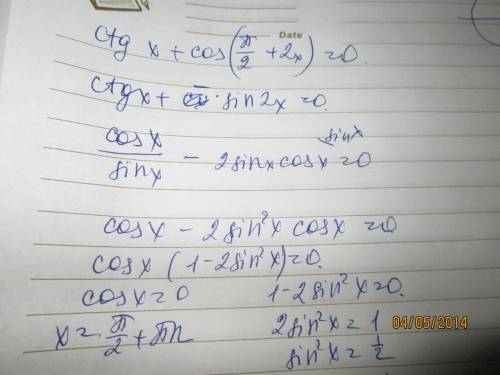 Date
ctg x + cos(π/2 + 2x) = 0.
ctg x + - sin 2x = 0.
sin x
cos x / sin x - 2 sin x cos x = 0
cos x - 2 sin² x cos x = 0
cos x (1 - 2 sin² x) = 0.
cos x = 0 1 - 2 sin² x = 0.
x = π/2 + πn 2 sin² x = 1
sin² x = 1/2
04/05/2014